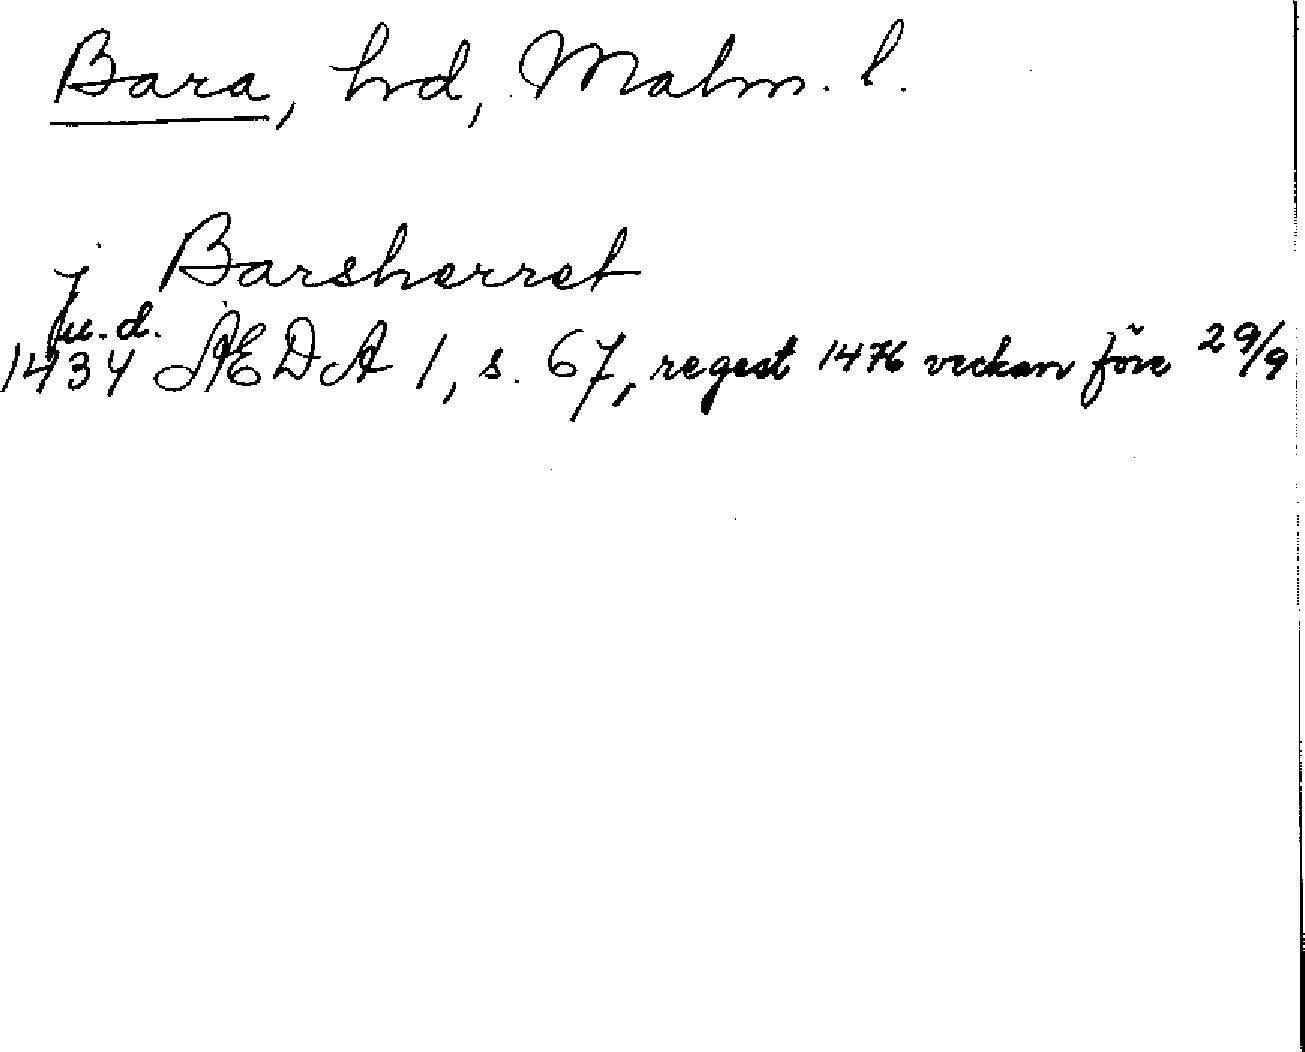 Bara, hrd, Malm. l.
j Barsherret
u. d.
1434 ÆDA 1, s. 67, regest 1476 veckan före 29/9